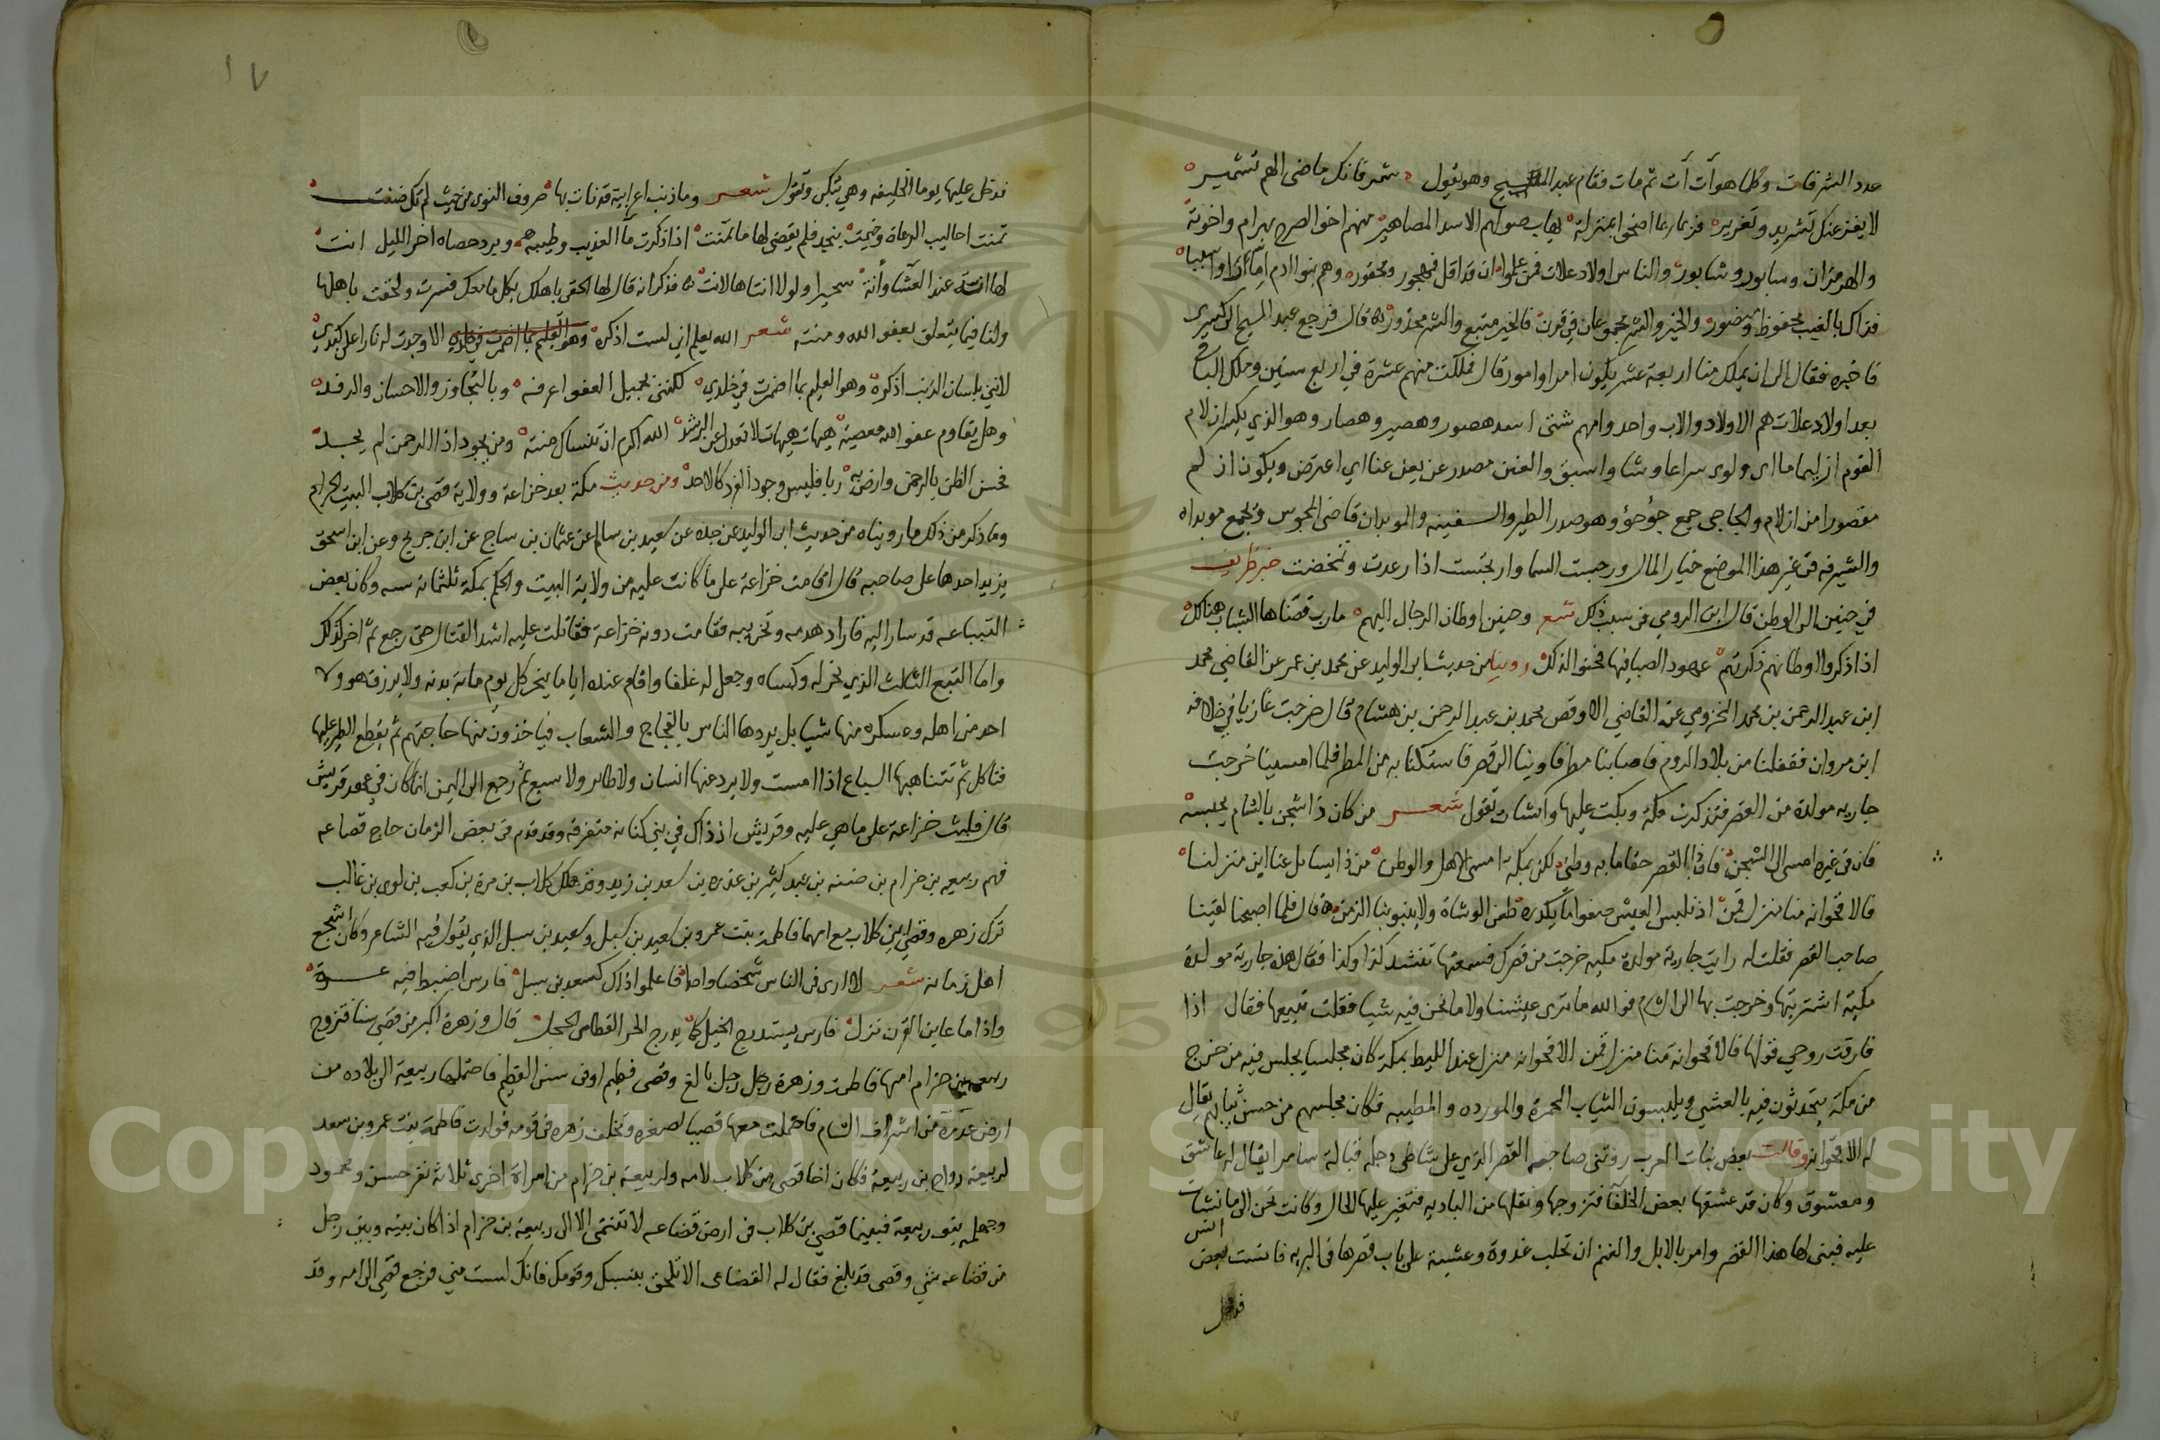 عدد الشرفات وكلما هو آت آت ثم مات فقام عبد المسيح وهو يقول شمر فانك ماضى الهم تشمير
لا يفزعنك تشريد وتغرير فربما ربما اضحوا بمنزلة يهاب صولهم الاسد المهاصير منهم اخو الصرح بهرام واخوته
والهرمزان وسابور وشابور والناس اولاد علات فمن علموا ان قد اقل فمهجور ومحقور وهم بنوا الام اما ان راوا نسبا
فذاك بالغيب محفوظ ومنصور والخير والشر مجموعان في قرن فالخير متبع والشر محذور قال فرجع عبد المسيح الى كسرى
فاخبره فقال الى ان يملك منا اربعة عشر يكون امور وامور قال فملكت منهم عشرة في اربع سنين وملك الباقي
بعد اولاد علات هم الاولاد والاب واحد وامهم شتى اسد هصور وهصير وهصار وهو الذي يكسر ازلام
القوم ازليما ما اى ولوى سراعا وشا واسبق والعنن مصدر عن يعن عنا اي اعترض ويكون ازلم
مقصورا من ازلام والجاجي جمع جؤجؤ وهو صدر الطير والسفينه والموبدان قاضى المجوس وتجمع موبداه
والشيرفه في غير هذا الموضع خيار المال ورجست السما وارتجست اذا رعدت وتمخضت خبر ظريف
في حنين الى الوطن قال ابن الرومي في سبب ذلك شعر وحبب اوطان الرجال اليهم مارب قضاها الشباب هنالك
اذا ذكروا اوطانهم ذكرتهم عهود الصبا فيها فحنوا لذلك روينا من حديث ابى الوليد عن محمد بن عمر عن القاضي محمد
ابن عبد الرحمن بن محمد المخزومي عن القاضي الاوقص محمد بن عبد الرحمن بن هشام قال خرجت غازيا في خلافه
ابن مروان فقفلنا من بلاد الروم فاصابنا مطر فاوينا الى قصر فاستكنا به من المطر فلما امسينا خرجت
جاريه مولدة من القصر فتذكرت مكة وبكت عليها وانشات تقول شعر من كان ذا شجن بالشام يحبسه
فان في غيره امسى الى الشجن فان ذا القصر حقا ما به وطني لكن بمكة امسى الاهل والوطن من ذا يسايل عنا اين منزلنا
فالاقحوانه منا منزل قمن اذ نلبس العيش صفوا ما يكدره طعن الوشاة ولا ينبو بنا الزمن قال فلما اصبحنا لقينا
صاحب القصر فقلت له رايت جارية مولدة مكيه خرجت من قصرك فسمعتها تنشد كذا وكذا فقال هذه جارية مولدة
مكية اشتريتها وخرجت بها الى الشام فوالله ما ترى عيشنا ولا ما نحن فيه شيا فقلت تبيعها فقال اذا
فارقت روحي قولها فالاقحوانة منا منزل قمن الاقحوانه منزل عند الليط بمكة كان مجلسا يجلس فيه من خرج
من مكة يتحدثون فيه بالعشي ويلبسون الثياب المحمرة والمورده والمطيبه فكان مجلسهم من حسن ثيابهم يقال
له الاقحوانه وقالت بعض بنات العرب رؤتى صاحبه القصر الذي على شاطى دجله قبالة سامرا يقال له عاشق
ومعشوق وكان قد عشقها بعض الخلفا فتزوجها ونقلها من الباديه فتغير عليها الحال وكانت تحن الى ما نشات
عليه فبنى لها هذا القصر وامر بالابل والغنم ان تحلب غدوة وعشية على باب قصرها في البريه فانست بعض
انس
فدخل
١٧
فدخل عليها يوما الخليفه وهي تبكي وتقول شعر وما ذنب اعرابية قذفت بها صروف النوى من حيث لم تك ظنت
تمنت احاليب الرعاة وخيمت بنجد فلم يقضى لها ما تمنت اذا ذكرت مآ العذيب وطيبه وبرد حصاه اخر الليل انت
لها انة عند العشآ وأنة سحيرا ولولا انتاها لانت فذكر انه قال لها الحقى باهلك بكل ما معك فسرت ولحقت باهلها
ولنا فيما يتعلق بعفو الله ومنته شعر الله يعلم اني لست اذكره وهو العليم بما اضمرت في خلدي الا وجدت له نارا على كبدي
لانني بلسان الذنب اذكره وهو العليم بما اضمرت في خلدي لكنني بجميل العفو اعرفه وبالتجاوز والاحسان والرفد
وهل يقاوم عفو الله معصية هيهات هيهات لا تعدل عن الرشد الله اكرم ان تنساك منته ومن يجود اذا الرحمن لم يجد
فحسن الظن بالرحمن وارض به ربا فليس وجود الفرد كالاحد ومن حديث مكة بعد خزاعة وولاية قصى بن كلاب البيت الحرام
وما ذكر من ذلك ما رويناه من حديث ابى الوليد عن جده عن سعيد بن سالم عن عثمان بن ساج عن ابن جريج وعن ابن اسحق
يزيد احدهما على صاحبه قال اقامت خزاعة على ما كانت عليه من ولاية البيت والحكم بمكة ثلثماية سنه وكان بعض
التبباعه قد سار اليه فاراد هدمه وتخريبه فقامت دونه خزاعة فقاتلت عليه اشد القتال حتى رجع ثم اخر كذلك
واما التبع الثالث الذي نحر له وكساه وجعل له غلقا واقام عنده اياما ينحر كل يوم مائة بدنه ولا يرزق هو ولا
احد من اهله وعسكره منها شيا بل يردها الناس بالفجاج والشعاب فياخذون منها حاجتهم ثم يقطع الطير عليها
فتاكل ثم تتناهبها السباع اذا امست ولا يرد عنها انسان ولا طاير ولا سبع ثم رجع الى اليمن انما كان في عهد قريش
قال فلبثت خزاعة على ما هي عليه وقريش اذ ذاك في بني كنانه متفرقه وقد قدم في بعض الزمان حاج قضاعه
فهم ربيعه بن حزام بن ضنه بن عبد كبير بن عذره بن سعد بن زيد وقد هلك كلاب بن مرة بن كعب بن لوى بن غالب
ترك زهره وقصى ابني كلاب مع امهما فاطمة بنت عمرو بن سعيد بن سيل وسعيد بن سيل الذي يقول فيه الشاعر وكان اشجع
اهل زمانه شعر لا ارى في الناس شخصا واحدا فاعلموا ذاك كسعد بن سيل فارس اضبط فيه عسرة
واذا ما عاين القرن نزل فارس يستدرج الخيل كما يدرج الحر القطامى الحجل قال وزهرة اكبر من قصى سنا فتزوج
ربيعه بن حزام امها فاطمة وزهرة رجل بالغ وقصى فطيم او فى سن الفطيم فاحتملها ربيعة الى بلاده من
ارض عذرة من اشراف الشام فاحتملت معها قصيا لصغره وتخلف زهره في قومه فولدت فاطمة بنت عمرو بن سعد
لربيعة رزاح بن ربيعة فكان اخا قصى بن كلاب لامه ولربيعة بن حزام من امراة اخرى ثلاثة نفر حسن ومحمود
وجلهمه بنو ربيعة فبينما قصى بن كلاب في ارض قضاعه لا تنتمى الا الى ربيعة بن حزام اذا كان بينه وبين رجل
من قضاعه شي وقصى قد بلغ فقال له القضاعى الا تلحق بنسبك وقومك فانك لست مني فرجع قصى الى امه وقد
Copyright © King Saud University